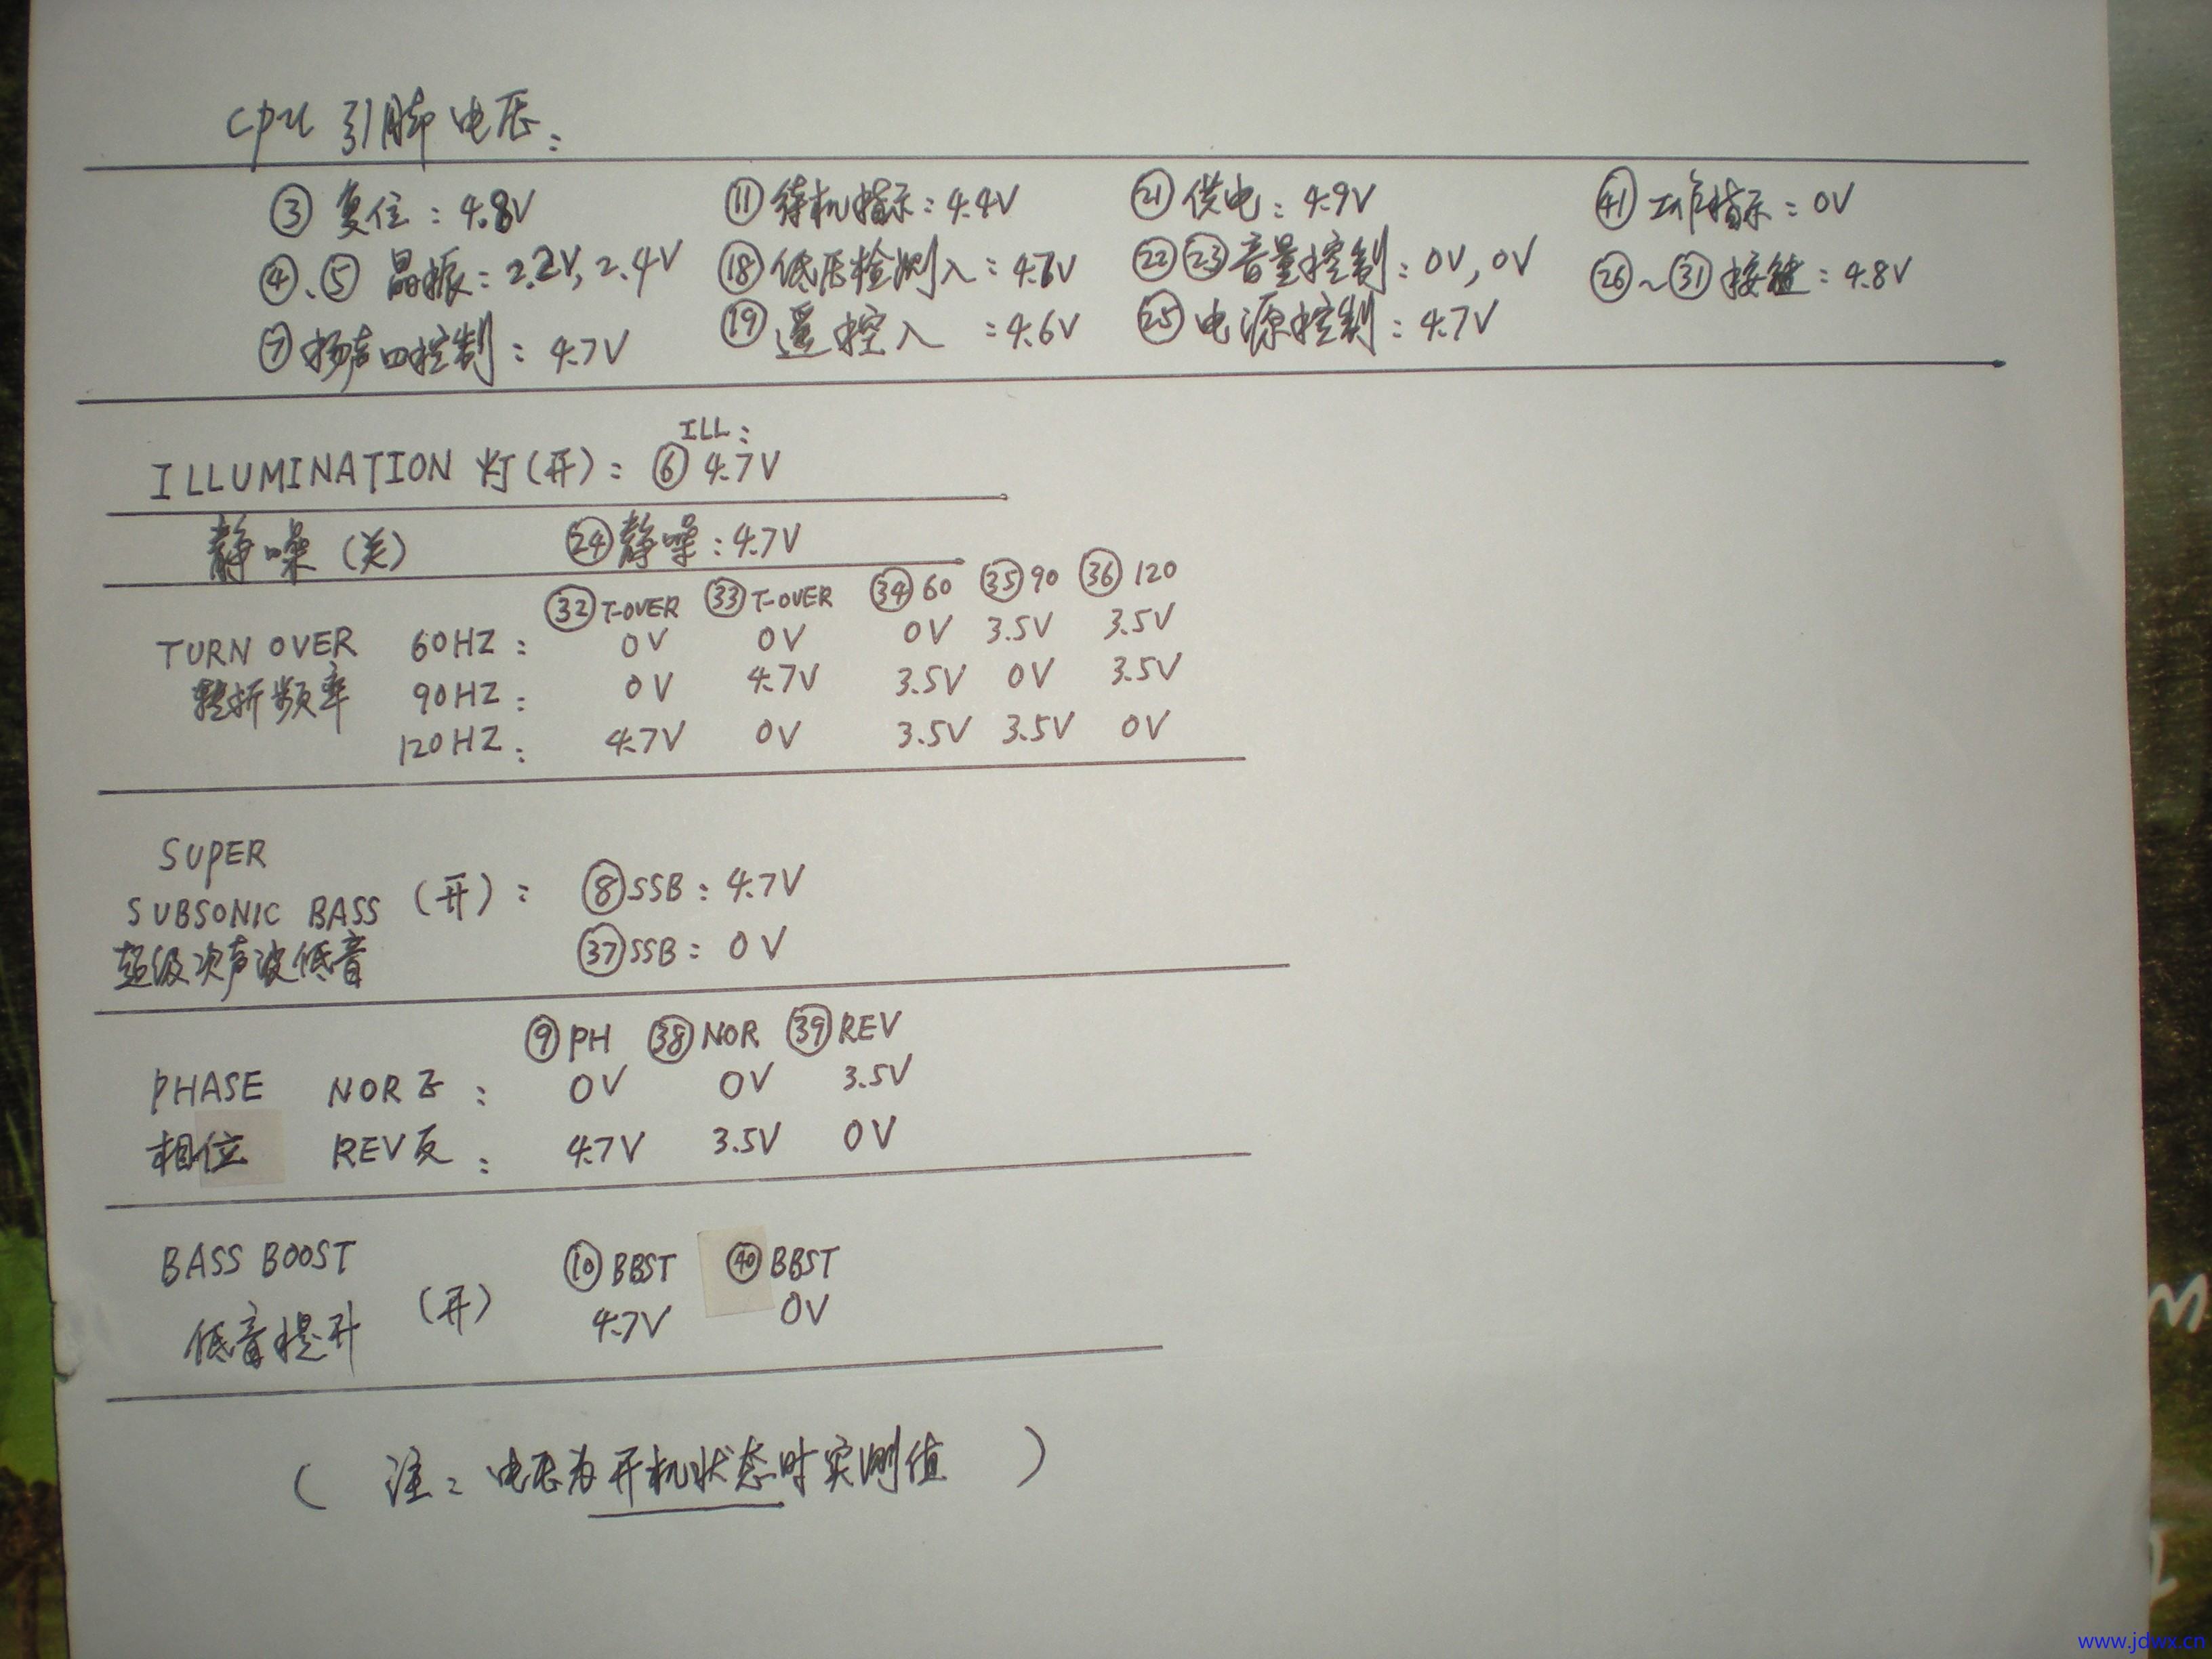 CPU 引脚电压:
③ 复位: 4.8V ⑪ 待机指示: 4.4V ㉑ 供电: 4.9V ㊶ 工作指示: 0V
④、⑤ 晶振: 2.2V, 2.4V ⑱ 低压检测入: 4.7V ㉒ ㉓ 音量控制: 0V, 0V ㉖~㉛ 按键: 4.8V
⑦ 扬声口控制: 4.7V ⑲ 遥控入: 4.6V ㉕ 电源控制: 4.7V
ILL:
ILLUMINATION 灯(开): ⑥ 4.7V
静噪(关) ㉔ 静噪: 4.7V
㉜ T-OVER ㉝ T-OVER ㉞ 60 ㉟ 90 ㊱ 120
TURN OVER 60HZ: 0V 0V 0V 3.5V 3.5V
转折频率 90HZ: 0V 4.7V 3.5V 0V 3.5V
120HZ: 4.7V 0V 3.5V 3.5V 0V
SUPER
SUBSONIC BASS (开): ⑧ SSB: 4.7V
超级次声波低音 ㊲ SSB: 0V
⑨ PH ㊳ NOR ㊴ REV
PHASE NOR正: 0V 0V 3.5V
相位 REV反: 4.7V 3.5V 0V
BASS BOOST ⑩ BBST ㊵ BBST
低音提升 (开) 4.7V 0V
( 注: 电压为开机状态时实测值 )
www.jdwx.cn